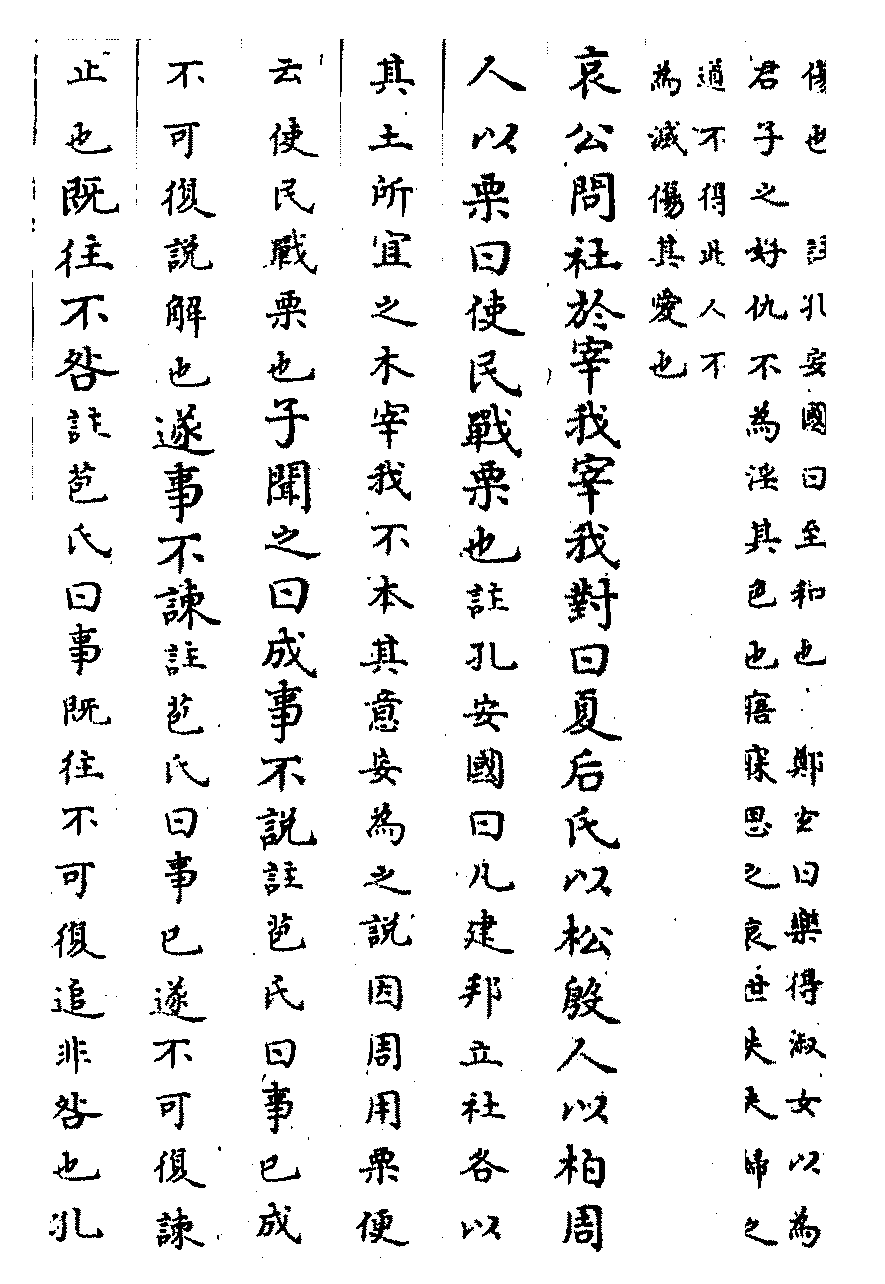 傷也　註孔安國曰至和也　鄭玄曰樂得淑女以為
君子之好仇不為淫其色也寤寐思之哀世失夫婦之
道不得此人不
為滅傷其愛也
哀公問社於宰我宰我對曰夏后氏以松殷人以柏周
人以栗曰使民戰栗也註孔安國曰凡建邦立社各以
其土所宜之木宰我不本其意妄為之説因周用栗便
云使民戰栗也子聞之曰成事不説註苞氏曰事已成
不可復説解也遂事不諫註苞氏曰事已遂不可復諫
止也既往不咎註苞氏曰事既往不可復追非咎也孔